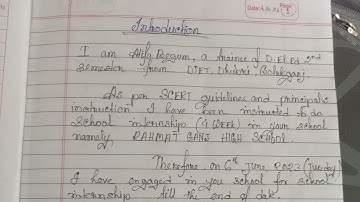 Date: 
Page 1
Introduction
I am Atifa Begum, a trainee of D.El.Ed 2nd
semester from DIET, Dhubri, Golakganj.
As per SCERT guidelines and principal's
instruction I have been instructed to do
School internship (4 WEEK) in your school
namely, RAHMAT GANJ HIGH SCHOOL.
Therefore, on 6th June, 2023 (Tuesday)
I have engaged in you school for school
internship till the end of date.